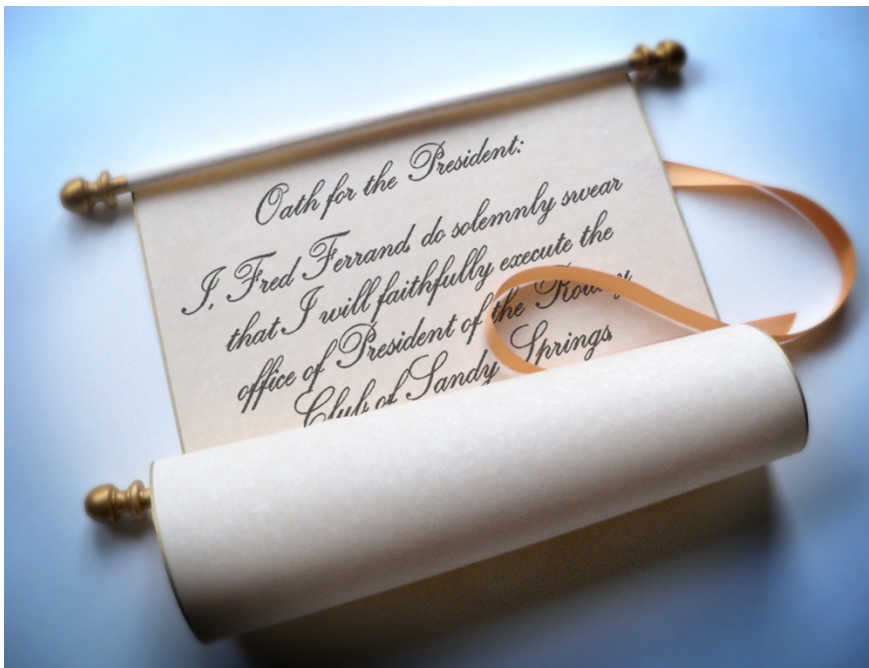 Oath for the President:
I, Fred Ferrand, do solemnly swear
that I will faithfully execute the
office of President of the Rotary
Club of Sandy Springs